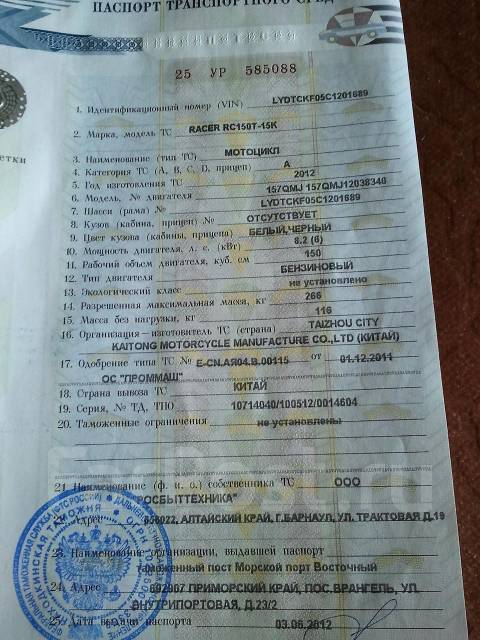 ПАСПОРТ ТРАНСПОРТНОГО СРЕД
25 УР 585088
1. Идентификационный номер (VIN) LYDTCKF05C1201689
2. Марка, модель ТС RACER RC150T-15K
3. Наименование (тип ТС) МОТОЦИКЛ
4. Категория ТС (A, B, C, D, прицеп) A
5. Год изготовления ТС 2012
6. Модель, № двигателя 157QMJ 157QMJ12038340
7. Шасси (рама) № LYDTCKF05C1201689
8. Кузов (кабина, прицеп) № ОТСУТСТВУЕТ
9. Цвет кузова (кабины, прицепа) БЕЛЫЙ,ЧЕРНЫЙ
10. Мощность двигателя, л. с. (кВт) 8.2 (6)
11. Рабочий объем двигателя, куб. см 150
12. Тип двигателя БЕНЗИНОВЫЙ
13. Экологический класс не установлено
14. Разрешенная максимальная масса, кг 266
15. Масса без нагрузки, кг 116
16. Организация—изготовитель ТС (страна) TAIZHOU CITY
KAITONG MOTORCYCLE MANUFACTURE CO.,LTD (КИТАЙ)
17. Одобрение типа ТС № E-CN.АЯ04.B.00115 от 01.12.2011
ОС "ПРОММАШ"
18. Страна вывоза ТС КИТАЙ
19. Серия, № ТД, ТПО 10714040/100512/0014604
20. Таможенные ограничения не установлены
21. Наименование (ф. и. о.) собственника ТС ООО
"РОСБЫТТЕХНИКА"
22. Адрес 656022, АЛТАЙСКИЙ КРАЙ, Г.БАРНАУЛ, УЛ. ТРАКТОВАЯ Д.19
23. Наименование организации, выдавшей паспорт
таможенный пост Морской порт Восточный
24. Адрес ПРИМОРСКИЙ КРАЙ, ПОС.ВРАНГЕЛЬ, УЛ.
ВНУТРИПОРТОВАЯ, Д.23/2
25. Дата выдачи паспорта 03.06.2012